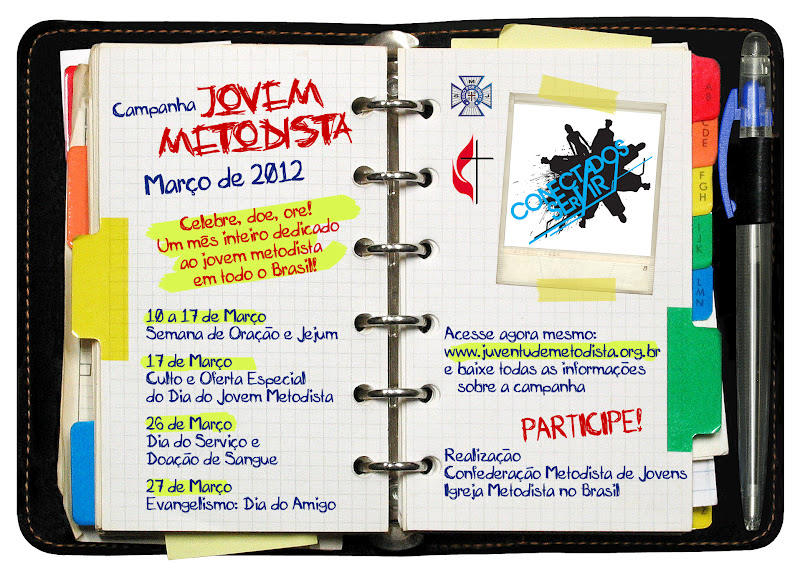 Campanha JOVEM
METODISTA
Março de 2012
Celebre, doe, ore!
Um mês inteiro dedicado
ao jovem metodista
em todo o Brasil!
10 a 17 de Março
Semana de Oração e Jejum
17 de Março
Culto e Oferta Especial
do Dia do Jovem Metodista
26 de Março
Dia do Serviço e
Doação de Sangue
27 de Março
Evangelismo: Dia do Amigo
CONECTADOS
P/
SERVIR
Acesse agora mesmo:
www.juventudemetodista.org.br
e baixe todas as informações
sobre a campanha
PARTICIPE!
Realização
Confederação Metodista de Jovens
Igreja Metodista no Brasil
AB
C
DE
F
GH
I
JK
L
MN
Z